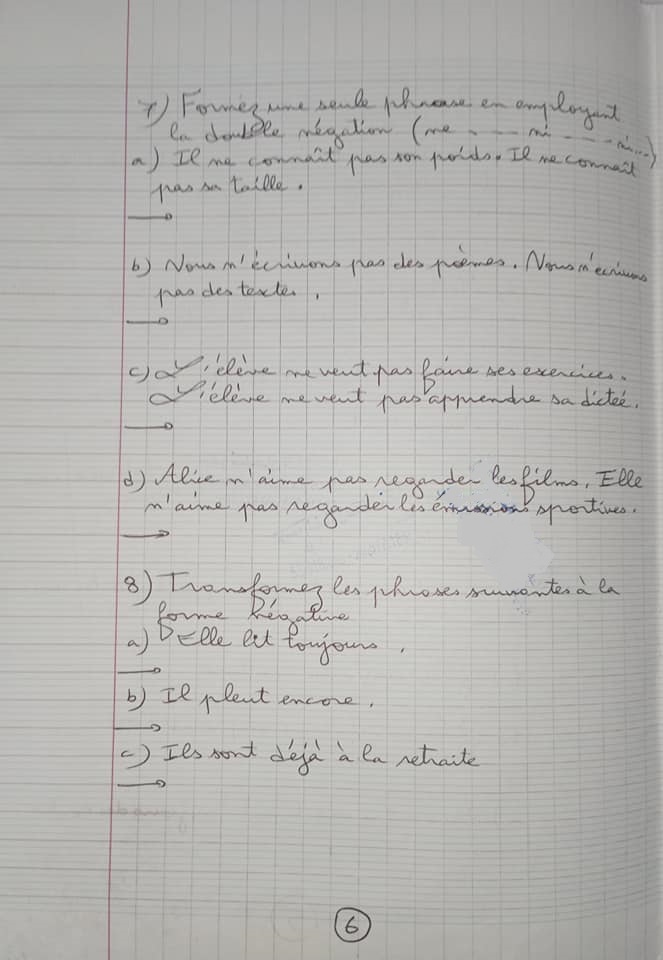 7) Formez une seule phrase en employant
la double négation (ne ---- ni ---- ni...)
a) Il ne connaît pas son poids. Il ne connaît
pas sa taille.
b) Nous n'écrivons pas des poèmes. Nous n'écrivons
pas des textes.
c) L'élève ne veut pas faire ses exercices.
L'élève ne veut pas apprendre sa dicteé.
d) Alice n'aime pas regarder les films. Elle
n'aime pas regarder les émissions sportives.
8) Transformez les phrases suivantes à la
forme Négative
a) Elle lit toujours.
b) Il pleut encore.
c) Ils sont déjà à la retraite
6